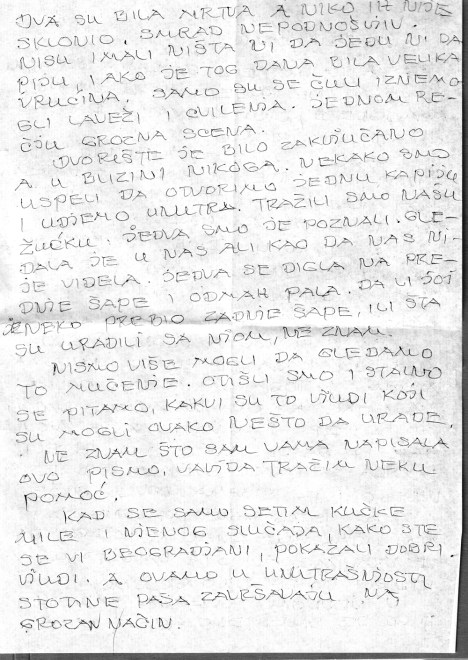 DVA SU BILA MRTVA A NIKO IH NIJE
SKLONIO. SMRAD NEPODNOŠLJIV.
NISU IMALI NIŠTA NI DA JEDU NI DA
PIJU, IAKO JE TOG DANA BILA VELIKA
VRUĆINA. SAMO SU SE ČULI IZNEMO-
GLI LAVEŽI I CVILENJA. JEDNOM RE-
ČJU GROZNA SCENA.
DVORIŠTE JE BILO ZAKLJUČANO
A U BLIZINI NIKOGA. NEKAKO SMO
USPELI DA OTVORIMO JEDNU KAPIJU
I UDJEMO UNUTRA. TRAŽILI SMO NAŠU
ŽUĆKU. JEDVA SMO JE POZNALI. GLE-
DALA JE U NAS ALI KAO DA NAS NI-
JE VIDELA. JEDVA SE DIGLA NA PRE-
DNJE ŠAPE I ODMAH PALA. DA LI JOJ
JE NEKO PREBIO ZADNJE ŠAPE, ILI ŠTA
SU URADILI SA NJOM, NE ZNAM.
NISMO VIŠE MOGLI DA GLEDAMO
TO MUČENJE. OTIŠLI SMO I STALNO
SE PITAMO, KAKVI SU TO LJUDI KOJI
SU MOGLI OVAKO NEŠTO DA URADE.
NE ZNAM ŠTO SAM VAMA NAPISALA
OVO PISMO, VALJDA TRAŽIM NEKU
POMOĆ.
KAD SE SAMO SETIM KUČKE
MILE I NJENOG SLUČAJA, KAKO STE
SE VI BEOGRADJANI, POKAZALI DOBRI
LJUDI. A OVAMO U UNUTRAŠNJOSTI
STOTINE PAŠA ZAVRŠAVAJU NA
GROZAN NAČIN.